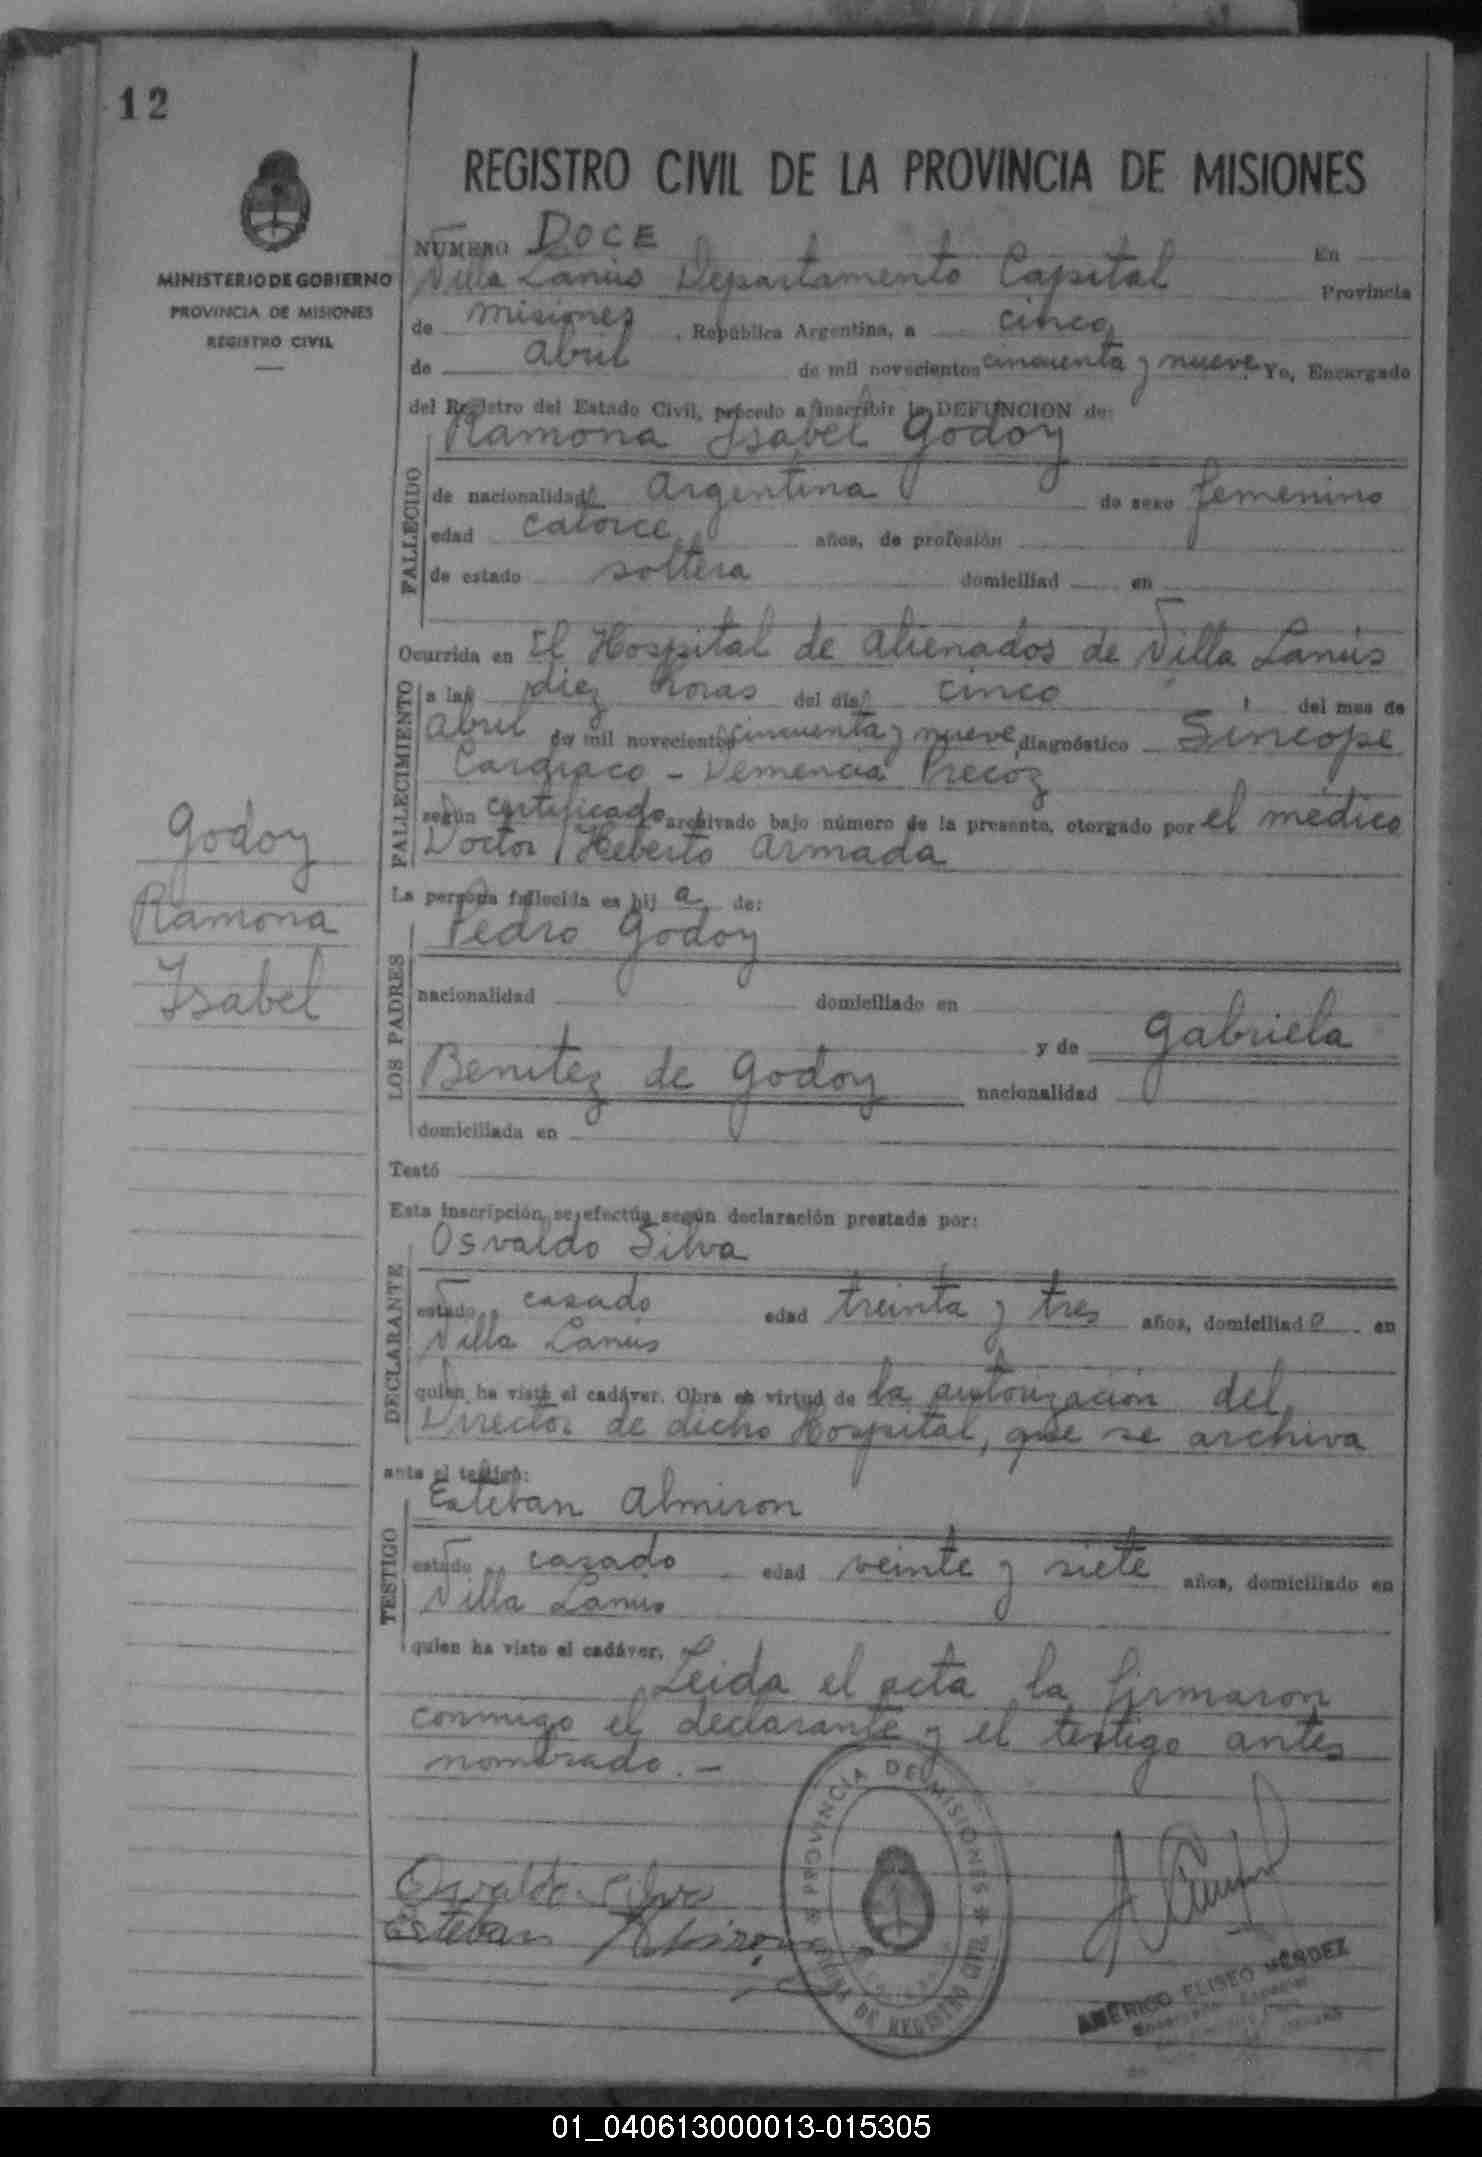 12
REGISTRO CIVIL DE LA PROVINCIA DE MISIONES
MINISTERIO DE GOBIERNO
PROVINCIA DE MISIONES
REGISTRO CIVIL
NÚMERO DOCE En
Villa Lanús Departamento Capital Provincia
de Misiones, República Argentina, a cinco
de abril de mil novecientos cincuenta y nueve Yo, Encargado
del Registro del Estado Civil, procedo a inscribir la DEFUNCION de:
Ramona Isabel Godoy
FALLECIDO
de nacionalidad Argentina de sexo femenino
edad catorce años, de profesión
de estado soltera domiciliad en
Ocurrida en El Hospital de alienados de Villa Lanús
FALLECIMIENTO
a las diez horas del día cinco del mes de
abril de mil novecientos cincuenta y nueve, diagnóstico Síncope
Cardiaco - Demencia Precoz
según certificado archivado bajo número de la presente, otorgado por el médico
Doctor Heberto Armada
Godoy
Ramona
Isabel
La persona fallecida es hij a de:
LOS PADRES
Pedro Godoy
nacionalidad domiciliado en
y de Gabriela
Benitez de Godoy nacionalidad
domiciliada en
Testó
Esta inscripción se efectúa según declaración prestada por:
DECLARANTE
Osvaldo Silva
estado casado edad treinta y tres años, domiciliad o en
Villa Lanús
quien ha visto el cadáver. Obra en virtud de la autorización del
Director de dicho Hospital, que se archiva
ante el testigo:
TESTIGO
Esteban Almiron
estado casado edad veinte y siete años, domiciliado en
Villa Lanus
quien ha visto el cadáver. Leida el acta la firmaron
conmigo el declarante y el testigo antes
nombrado. -
Osvaldo Silva
Esteban
PROVINCIA DE MISIONES
DE REGISTRO CIVIL
AMÉRICO ELISEO MÉNDEZ
01_040613000013-015305